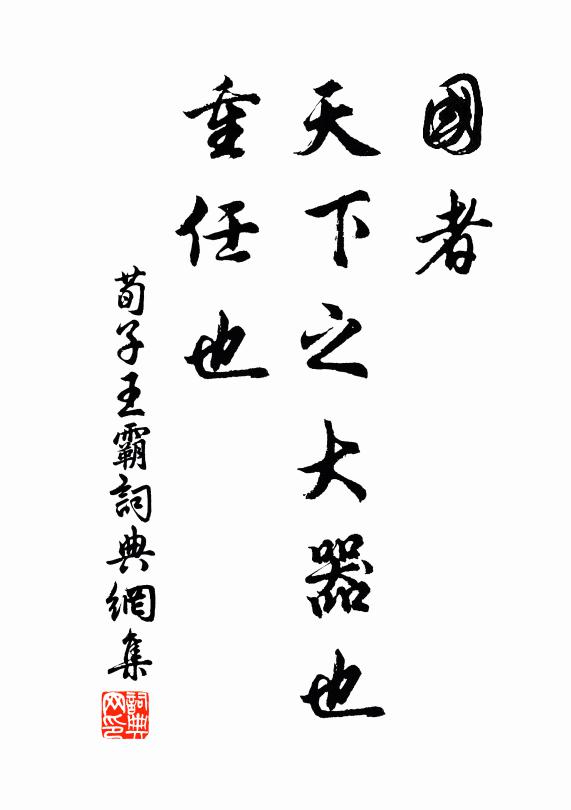 國者
天下之大器也
重任也
荀子王霸詞典網集
詞典
网印